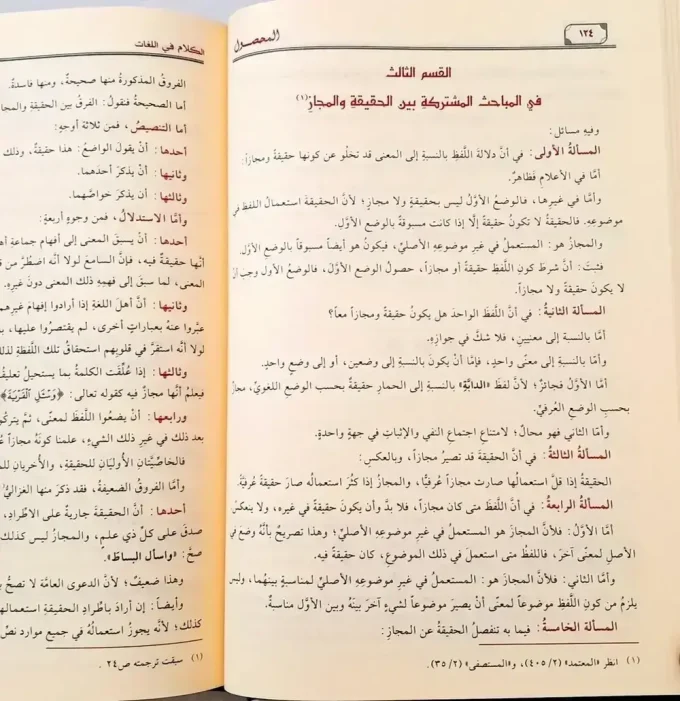 ١٢٤
المحصول
القسم الثالث
في المباحث المشتركةِ بين الحقيقةِ والمجازِ(١)
وفيهِ مسائل:
المسألة الأولى: في أنَّ دلالةَ اللَّفظِ بالنسبةِ إلى المعنى قد تخلُو عن كونها حقيقةً ومجازاً:
أمَّا في الأعلامِ فَظاهرٌ.
وأمَّا في غيرِها، فالوضعُ الأوَّلُ ليس بحقيقةٍ ولا مجازٍ؛ لأنَّ الحقيقةَ استعمالُ اللفظ في
موضوعِهِ. فالحقيقةُ لا تكونُ حقيقةً إلَّا إذا كانت مسبوقةً بالوضعِ الأوَّلِ.
والمجازُ هو: المستعملُ في غيرِ موضوعِهِ الأصليِّ، فيكونُ هو أيضاً مسبوقاً بالوضعِ الأوَّل.
فثبتَ: أنَّ شرطَ كونِ اللَّفظِ حقيقةً أو مجازاً، حصولُ الوضعِ الأوَّلَ، فالوضعُ الأول وجب أنْ
لا يكونَ حقيقةً ولا مجازاً.
المسألة الثانيةُ: في أنَّ اللَّفظَ الواحدَ هل يكونُ حقيقةً ومجازاً معاً؟
أمَّا بالنسبة إلى معنيينِ، فلا شكَّ في جوازِهِ.
وأمَّا بالنسبةِ إلى معنًى واحدٍ، فإمَّا أنْ يكونَ بالنسبةِ إلى وضعينِ، أو إلى وضعٍ واحدٍ.
أمَّا الأوَّلُ فجائزٌ؛ لأنَّ لفظَ «الدابَّةِ» بالنسبةِ إلى الحمارِ حقيقةٌ بحسبِ الوضعِ اللغويِّ، مجازٌ
بحسبِ الوضعِ العُرفيِّ.
وأمَّا الثاني فهو محالٌ؛ لامتناعِ اجتماعِ النفي والإثباتِ في جهةٍ واحدةٍ.
المسألة الثالثةُ: في أنَّ الحقيقةَ قد تصيرُ مجازاً، وبالعكسِ:
الحقيقةُ إذا قلَّ استعمالُها صارت مجازاً عُرفيًّا، والمجازُ إذا كثُرَ استعمالُه صارَ حقيقةً عُرفيَّةً.
المسألة الرابعةُ: في أنَّ اللَّفظَ متى كان مجازاً، فلا بدَّ وأن يكونَ حقيقةً في غيرِه، ولا ينعكسُ
أمَّا الأوَّلُ: فلأنَّ المجازَ هو المستعملُ في غيرِ موضوعِهِ الأصليِّ؛ وهذا تصريحٌ بأنَّهُ وضعَ في
الأصلِ لمعنًى آخرَ، فاللفظُ متى استعملَ في ذلك الموضوعِ، كان حقيقةً فيه.
وأمَّا الثاني: فلأنَّ المجازَ هو: المستعملُ في غيرِ موضوعِهِ الأصليِّ لمناسبةٍ بينَهُما، وليس
يلزمُ من كونِ اللَّفظِ موضوعاً لمعنًى أنْ يصيرَ موضوعاً لشيءٍ آخرَ بينَهُ وبين الأوَّلِ مناسبةٌ.
المسألة الخامسةُ: فيما به تنفصلُ الحقيقةُ عن المجازِ:
(١) انظر «المعتمد» (٢/ ٤٠٥)، و«المستصفى» (٢/ ٣٥).
الكلام في اللغات
الفروقُ المذكورةُ منها صحيحةٌ، ومنها فاسدةٌ.
أما الصحيحةُ فنقولُ: الفرقُ بين الحقيقةِ والمجا
أما التنصيصُ، فمن ثلاثةِ أوجهٍ:
أحدها: أنْ يقولَ الواضعُ: هذا حقيقةٌ، وذلك
وثانيها: أنْ يذكرَ أحدَهما.
وثالثها: أن يذكرَ خواصَّهما.
وأمَّا الاستدلالُ، فمن وجوهٍ أربعةٍ:
أحدها: أنْ يسبقَ المعنى إلى أفهامِ جماعةِ أه
أنَّها حقيقةٌ فيه، فإنَّ السامعَ لولا أنه اضطُرَّ من ق
المعنى، لما سبقَ إلى فهمِهِ ذلك المعنى دونَ غيرِهِ.
وثانيها: أنَّ أهلَ اللغةِ إذا أرادوا إفهامَ غيرِهم
عبَّروا عنهُ بعباراتٍ أخرى، لم يقتصرُوا عليها،
لولا أنه استقرَّ في قلوبِهم استحقاقُ تلك اللَّفظةِ لذل
وثالثها: إذا عُلِّقَت الكلمةُ بما يستحيلُ تعليقُ
فيعلمُ أنَّها مجازٌ فيه كقوله تعالى: ﴿وَسْئَلِ ٱلْقَرْيَةَ﴾
ورابعها: أنْ يضعُوا اللَّفظَ لمعنًى، ثمَّ يتركُو
بعد ذلك في غيرِ ذلك الشيءِ، علمنا كونَهُ مجازاً
فالخاصِّيَّتانِ الأُوليانِ للحقيقةِ، والأُخريانِ لل
وأمَّا الفروقُ الضعيفةُ، فقد ذكرَ منها الغزاليُّ
أحدها: أنَّ الحقيقةَ جاريةٌ على الاطِّرادِ،
صدقَ على كلِّ ذي علمٍ، والمجازُ ليس كذلك
صحَّ: «واسأل البساطَ».
وهذا ضعيفٌ؛ لأنَّ الدعوى العامَّةَ لا تصحُّ
وأيضاً: إن أرادَ باطِّرادِ الحقيقةِ استعمالها
كذلك؛ لأنَّه يجوزُ استعمالُهُ في جميعِ مواردِ نصِّ
(١) سبقت ترجمته ص٢٤.